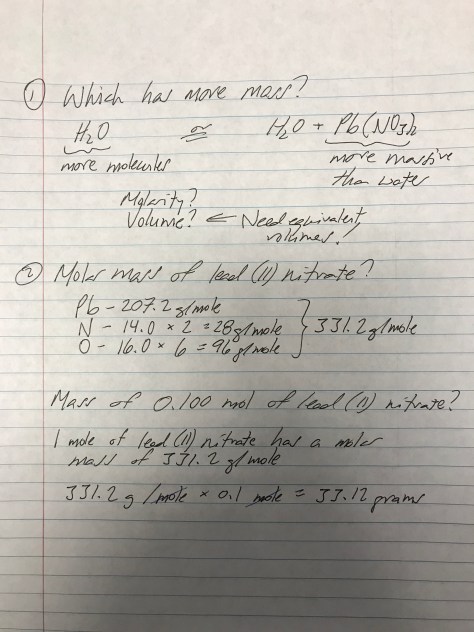 ① Which has more mass?
H₂O or H₂O + Pb(NO3)₂
more molecules more massive
than water
Molarity?
Volume? ← Need equivalent
volumes!
② Molar mass of lead (II) nitrate?
Pb - 207.2 g/mole
N - 14.0 × 2 = 28 g/mole } 331.2 g/mole
O - 16.0 × 6 = 96 g/mole
Mass of 0.100 mol of lead (II) nitrate?
1 mole of lead (II) nitrate has a molar
mass of 331.2 g/mole
331.2 g/mole × 0.1 mole = 33.12 grams